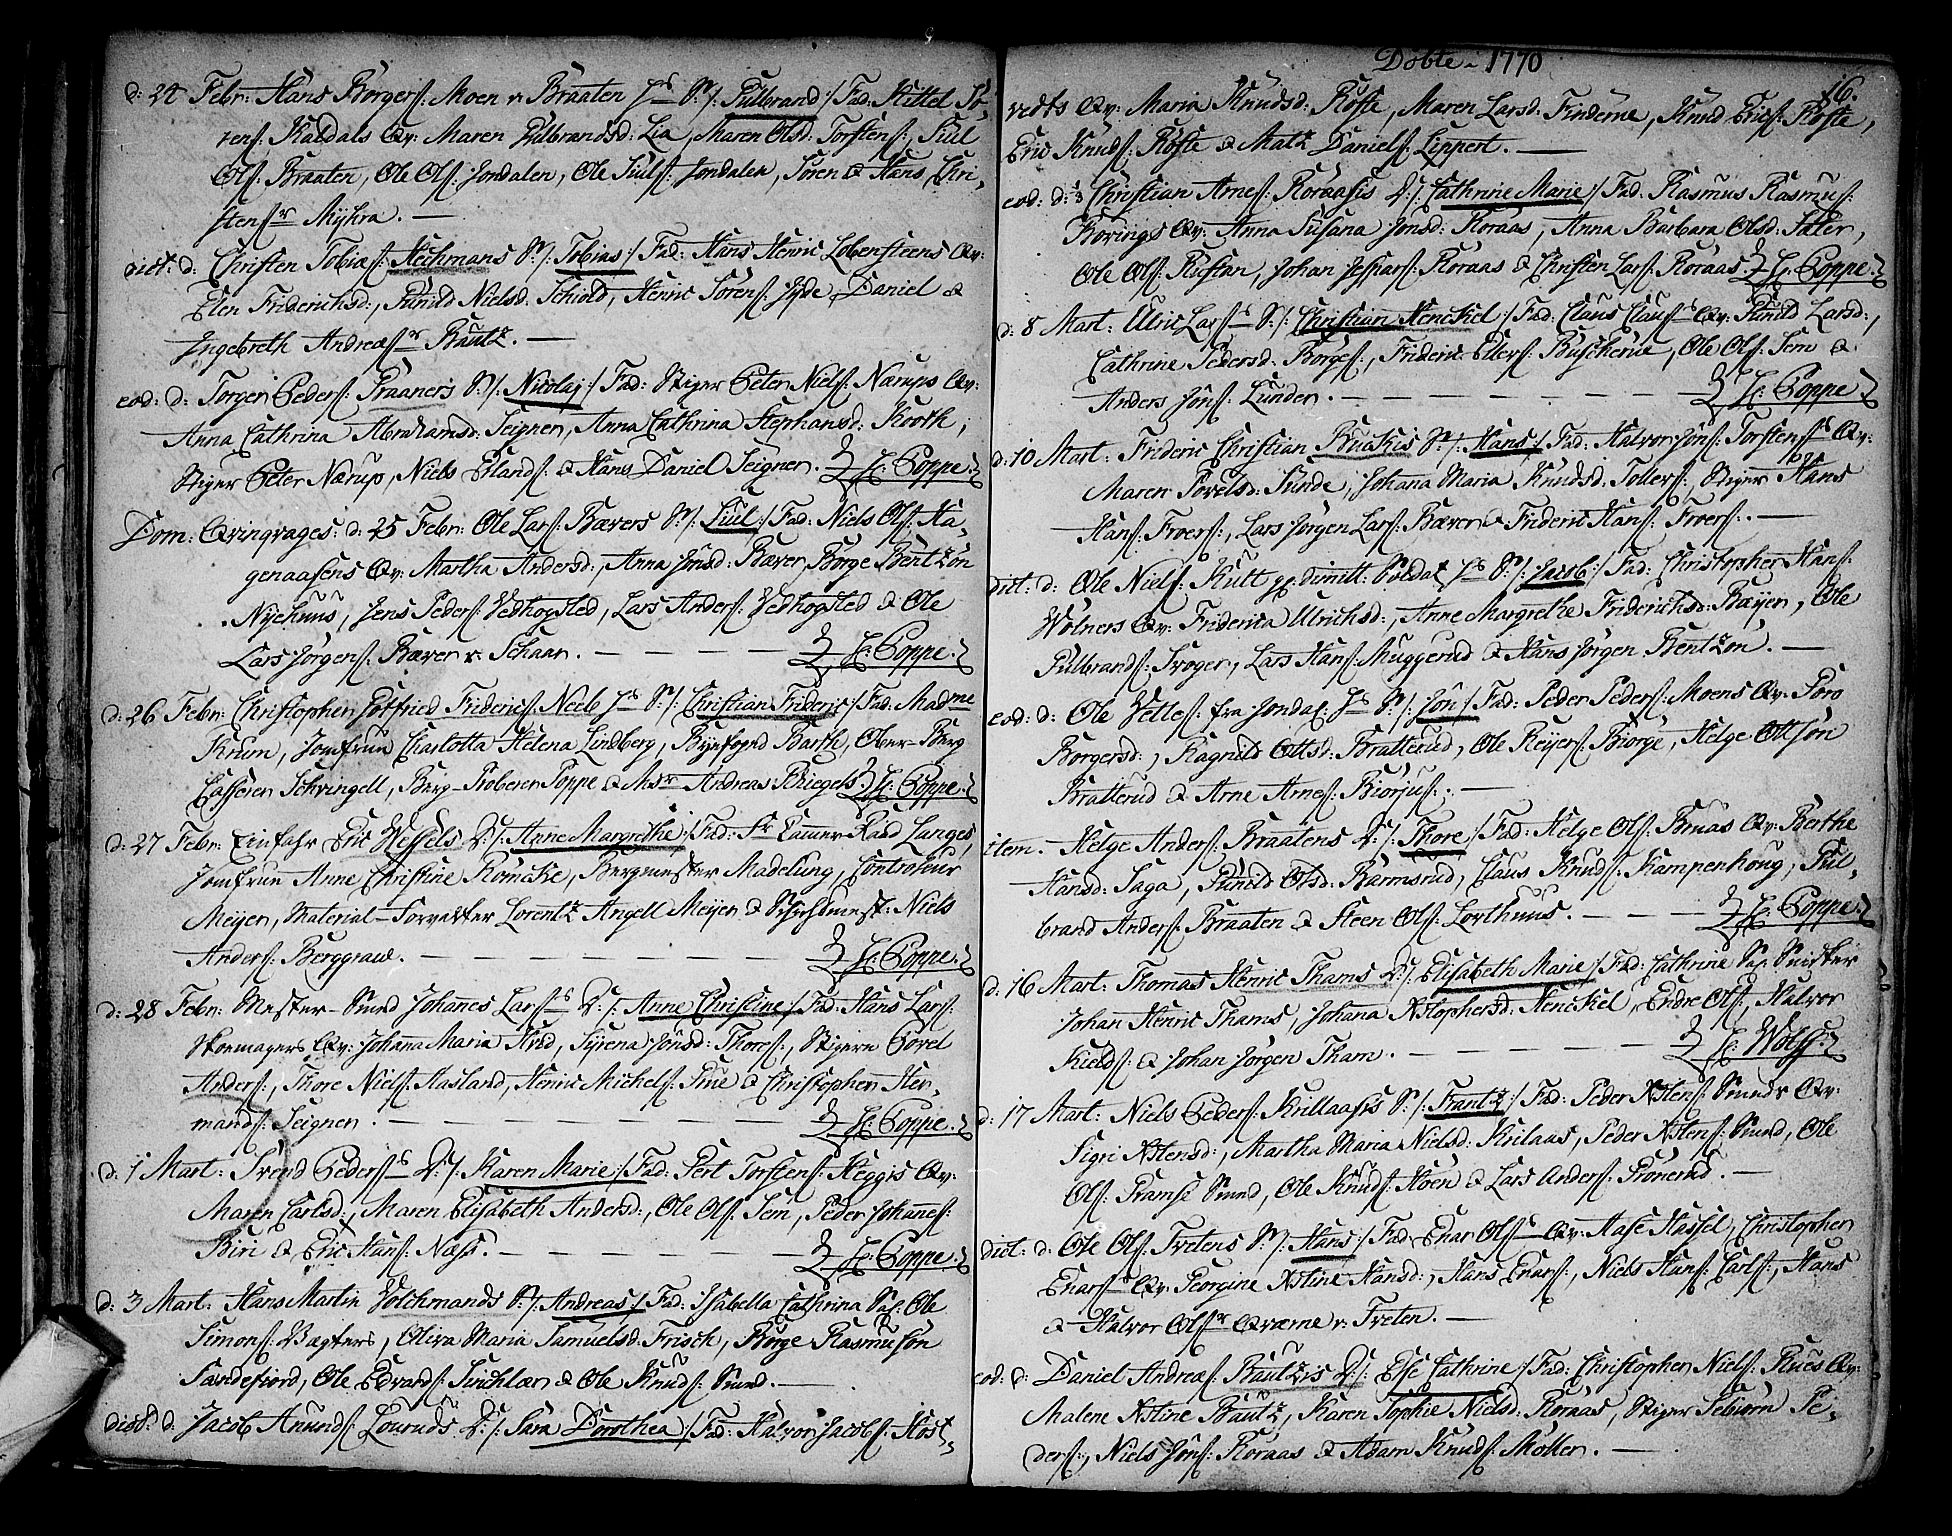 d: 24 Febr: Hans Börgers: Moen v Braaten Js S:/: Gulbrand :/ Fad: Kittel Sö-
rens: Kaldals Qv: Maren Gulbrandsd: Lia, Maren Olsd: Torstens:, Siul
Ols: Braaten, Ole Ols: Jondalen, Ole Siuls: Jondalen, Sören & Hans Chri-
stensr Mÿhra. —
dict: d: Christen Tobiæs: Hechmans S:/: Tobias :/ Fad: Hans Henric Lobensteens Qv:
Elen Friderichsd:, Gunild Nielsd: Schiold, Henric Sörens: Jyde, Daniel &
Ingebreth Andreæsr Bautz. —
eod: d: Torger Peders: Graaners S:/: Nicolaj :/ Fad: Stiger Peter Niels: Nærups Qv:
Anna Cathrina Abrahamsd: Seigner, Anna Cathrina Stephansd: Kooth,
Stiger Peter Nærup, Niels Erlands: & Hans Daniel Seigner. H: Poppe.
Dom: Qvinqvages: d: 25 Febr: Ole Lars: Bævers S:/: Siul :/ Fad: Niels Ols: Ha-
genaasens Qv: Martha Andersd:, Anna Jönsd: Bæver, Börge Bentzön
Nÿehuus, Jens Peders: Vedhogsled, Lars Anders: Vedhogsled & Ole
Lars Jörgens: Bæver v. Schaar. — — — — H: Poppe.
d: 26 Febr: Christopher Gotfried Frideric: Neeb Js S:/: Christian Frideric :/ Fad: Madme
Krum, Jomfrue Charlotta Helena Lindberg, Bÿefogd Barth, Ober-Berg
Casseren Schvingell, Berg-Probereren Poppe & Msr Andreas Kriegels: H: Poppe.
d: 27 Febr: Einfahr Eric Wessels D:/: Anne Margrethe :/ Fad: Fr Camer Raad Langes,
Jomfrue Anne Christine Romcke, Bergmester Madelung, Controleur
Meyer, Material-Forvalter Lorentz Angell Meÿer & Schichtmest: Niels
Anders: Berggrav. — — — — — H: Poppe.
d: 28 Febr: Mester-Smed Johanes Larss D:/: Anne Christine :/ Fad: Hans Lars:
Skomagers Qv: Johanna Maria Hvid, Syrena Jönsd: Thores:, Stigern Povel
Anders:, Thore Niels: Hasland, Henric Michels: Smie & Christopher Her-
mands: Seigner. — — — — — H: Poppe.
d: 1 Mart: Svend Peders: D:/: Karen Marie :/ Fad: Pert Torstens: Heggis Qv:
Maren Carlsd:, Maren Elisabeth Andersd:, Ole Ols: Sem, Peder Johanes:
Biri & Eric Hans: Næss. — — — — H: Poppe.
d: 3 Mart: Hans Martin Volchmands S:/: Andreas :/ Fad: Isabella Cathrina Sal. Ole
Simons: Vagters, Oliva Maria Samuelsd: Frisch, Börge Rasmusön
Sandefiord, Ole Edvards: Sinchlær & Ole Knuds: Smed. —
dict: d: Jacob Anunds: Louruds D:/: Sara Dorothea :/ Fad: Halvor Jacobs: Kost-
Döbte - 1770
16.
vedts Qv: Maria Knudsd: Röfte, Maren Larsd: Finderne, Knud Erics: Röfte,
Eric Knuds: Röfte & Matz Daniels: Lippert. —
eod: d: 3 Christian Arnes: Koraasis D:/: Cathrine Marie :/ Fad: Rasmus Rasmus:
Bovings Qv: Anna Susana Jonsd: Koraas, Anna Barbara Olsd: Sater,
Ole Ols: Rustan, Johan Jespars: Koraas & Christen Lars: Koraas. H: Poppe.
d: 8 Mart: Ulric Larss S:/: Christian Henckel :/ Fad: Claus Clauss Qv: Gunild Larsd:,
Cathrine Pedersd: Borges:, Frideric Ellers: Buscherue, Ole Ols: Sem &
Anders Jöns: Lunder. — — — — H: Poppe
d: 10 Mart: Frideric Christian Buckis S:/: Hans :/ Fad: Halvor Jöns: Torstens: Qv:
Maren Povelsd: Sunde, Johana Maria Knudsd: Tollers:, Stiger Hans
Hans: Froers:, Lars Jörgen Lars: Bæver & Frideric Hans: Froers:. —
dict: d: Ole Niels: Kutt gl dimitt: Soldat Js S:/: Jacob :/ Fad: Christopher Hans:
Wölners Qv: Friderica Ulrichsd:, Anne Margrethe Friderichsd: Bæÿer, Ole
Gulbrands: Svoger, Lars Hans: Muggerud & Hans Jörgen Bentzön. —
eod: d: Ole Velles: fra Jondal: Js S:/: Jön :/ Fad: Peder Peders: Moens Qv: Goro
Borgersd:, Ragnild Ottsd: Bratterud, Ole Reÿers: Biorge, Helge Ottsön
Bratterud & Arne Arnes: Biorjus:. —
item. Helge Anders: Braatens D:/: Thore :/ Fad: Helge Ols: Bruas Qv: Berthe
Hansd: Saga, Gunild Olsd: Barmsrud, Claus Knuds: Kampenhoug, Gul-
brand Anders: Braaten & Steen Ols: Lorthuus. — — — H: Poppe.
d: 16 Mart: Thomas Henric Thams D:/: Elisabeth Marie :/ Fad: Cathrine Sal. Snister
Johan Henric Thams, Johana Xstophersd: Henckel, Endre Ols:, Halvor
Kields: & Johan Jörgen Tham. — — — — H: Wolff.
d: 17 Mart: Niels Peders: Krillaasis S:/: Frantz :/ Fad: Peder Xstens: Smeds Qv:
Sigri Xstensd:, Martha Maria Nielsd: Krilaas, Peder Xstens: Smed, Ole
Ols: Gramsi Smed, Ole Knuds: Höen & Lars Anders: Gronerud. —
dict: d: Ole Ols: Tvetens S:/: Hans :/ Fad: Enar Olss Qv: Aase Hassel, Christopher
Enarss Qv: Georgine Xstine Hansd:, Hans Enars:, Niels Hans: Carls:, Hans
& Halvor Olsr Qværne v. Tveten. —
eod: d: Daniel Andreæs: Bautzis D:/: Else Cathrine :/ Fad: Christopher Niels: Rues Qv:
Malene Xstine Bautz, Karen Sophie Nielsd: Koraas, Stiger Sebiorn Pe-
ders:, Niels Jöns: Koraas & Adam Knuds: Möller. —